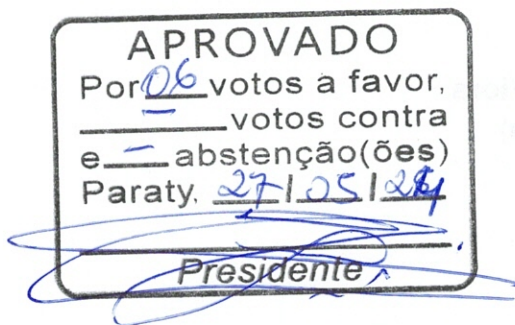 APROVADO
Por 06 votos a favor,
— votos contra
e — abstenção(ões)
Paraty, 27/05/24
Presidente